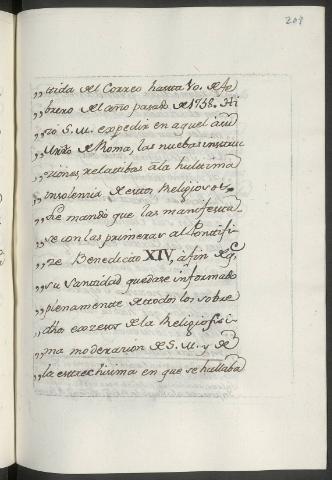 209
„ tida del Correo hasta Vo. de fe
„ brero del año pasado de 1758. Hi
„ zo S. M. expedir en aquel a su
„ Mntro de Roma, las nuebas instruc
„ ciones, relatibas à la hultima
„ insolencia de estos Religiosos,
„ le mandó que las manifesta
„ se con las primeras al Pontifi
„ ze Benedicto XIV, à fin de q.e
„ su Santidad quedase informado
„ plenamente de todos los sobre
„ dhos excesos de la Religiosisi
„ ma moderazion de S. M. y de
„ la estrechisima en que se hallaba